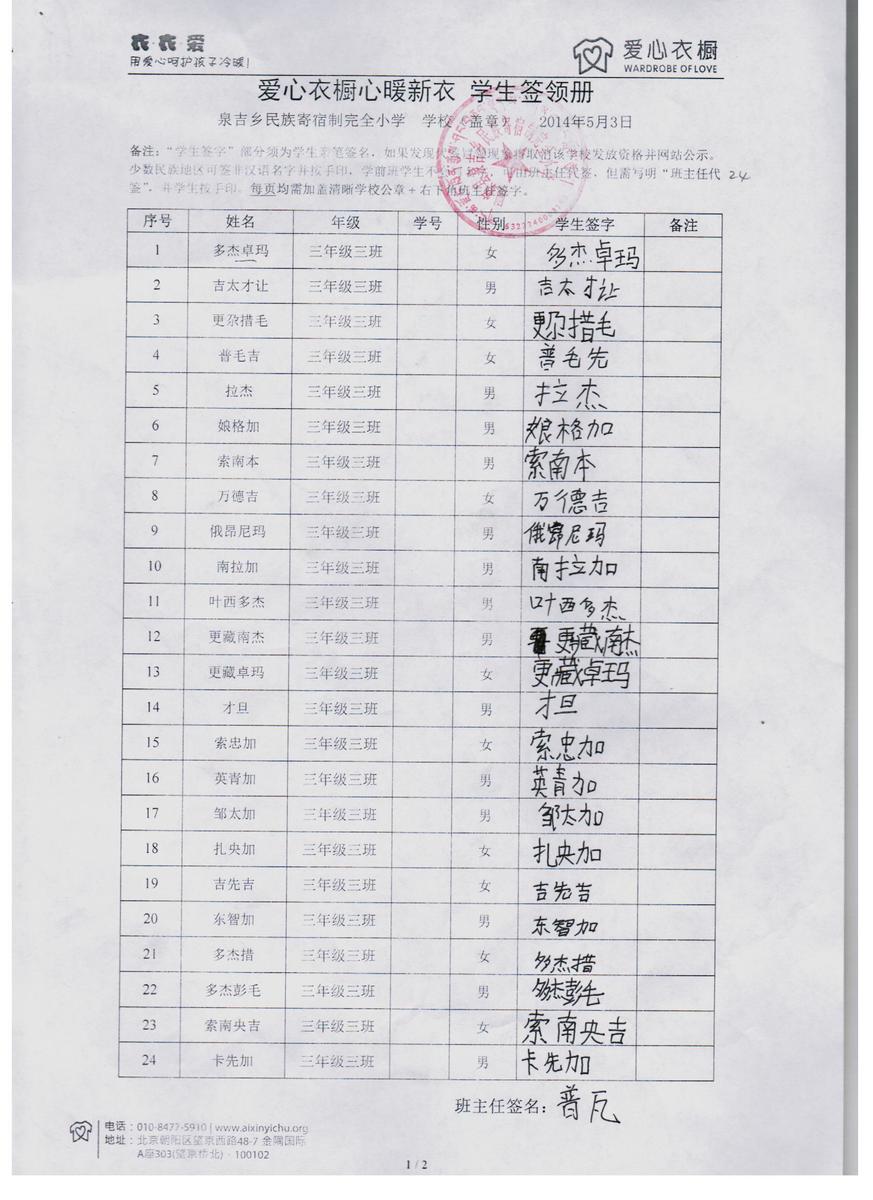 衣·衣爱
用爱心呵护孩子冷暖!
爱心衣橱
WARDROBE OF LOVE
爱心衣橱心暖新衣 学生签领册
泉吉乡民族寄宿制完全小学 学校（盖章） 2014年5月3日
备注："学生签字"部分须为学生亲笔签名，如果发现 将取消该学校发放资格并网站公示。
少数民族地区可签非汉语名字并按手印，学前班学生不 可由班主任代签，但需写明"班主任代 24
签"，并学生按手印。每页均需加盖清晰学校公章+右下角班主任签字。
序号 姓名 年级 学号 性别 学生签字 备注
1 多杰卓玛 三年级三班 女 多杰卓玛
2 吉太才让 三年级三班 男 吉太才让
3 更尕措毛 三年级三班 女 更尕措毛
4 普毛吉 三年级三班 女 普毛先
5 拉杰 三年级三班 男 拉杰
6 娘格加 三年级三班 男 娘格加
7 索南本 三年级三班 男 索南本
8 万德吉 三年级三班 女 万德吉
9 俄昂尼玛 三年级三班 男 俄昂尼玛
10 南拉加 三年级三班 男 南拉加
11 叶西多杰 三年级三班 男 叶西多杰
12 更藏南杰 三年级三班 男 更藏南杰
13 更藏卓玛 三年级三班 女 更藏卓玛
14 才旦 三年级三班 男 才旦
15 索忠加 三年级三班 女 索忠加
16 英青加 三年级三班 男 英青加
17 邹太加 三年级三班 男 邹太加
18 扎央加 三年级三班 女 扎央加
19 吉先吉 三年级三班 女 吉先吉
20 东智加 三年级三班 男 东智加
21 多杰措 三年级三班 女 多杰措
22 多杰彭毛 三年级三班 男 多杰彭毛
23 索南央吉 三年级三班 女 索南央吉
24 卡先加 三年级三班 男 卡先加
班主任签名：普瓦
电话：010-8477-5910 | www.aixinyichu.org
地址：北京朝阳区望京西路48-7 金隅国际
A座303(望京桥北)·100102
1 / 2